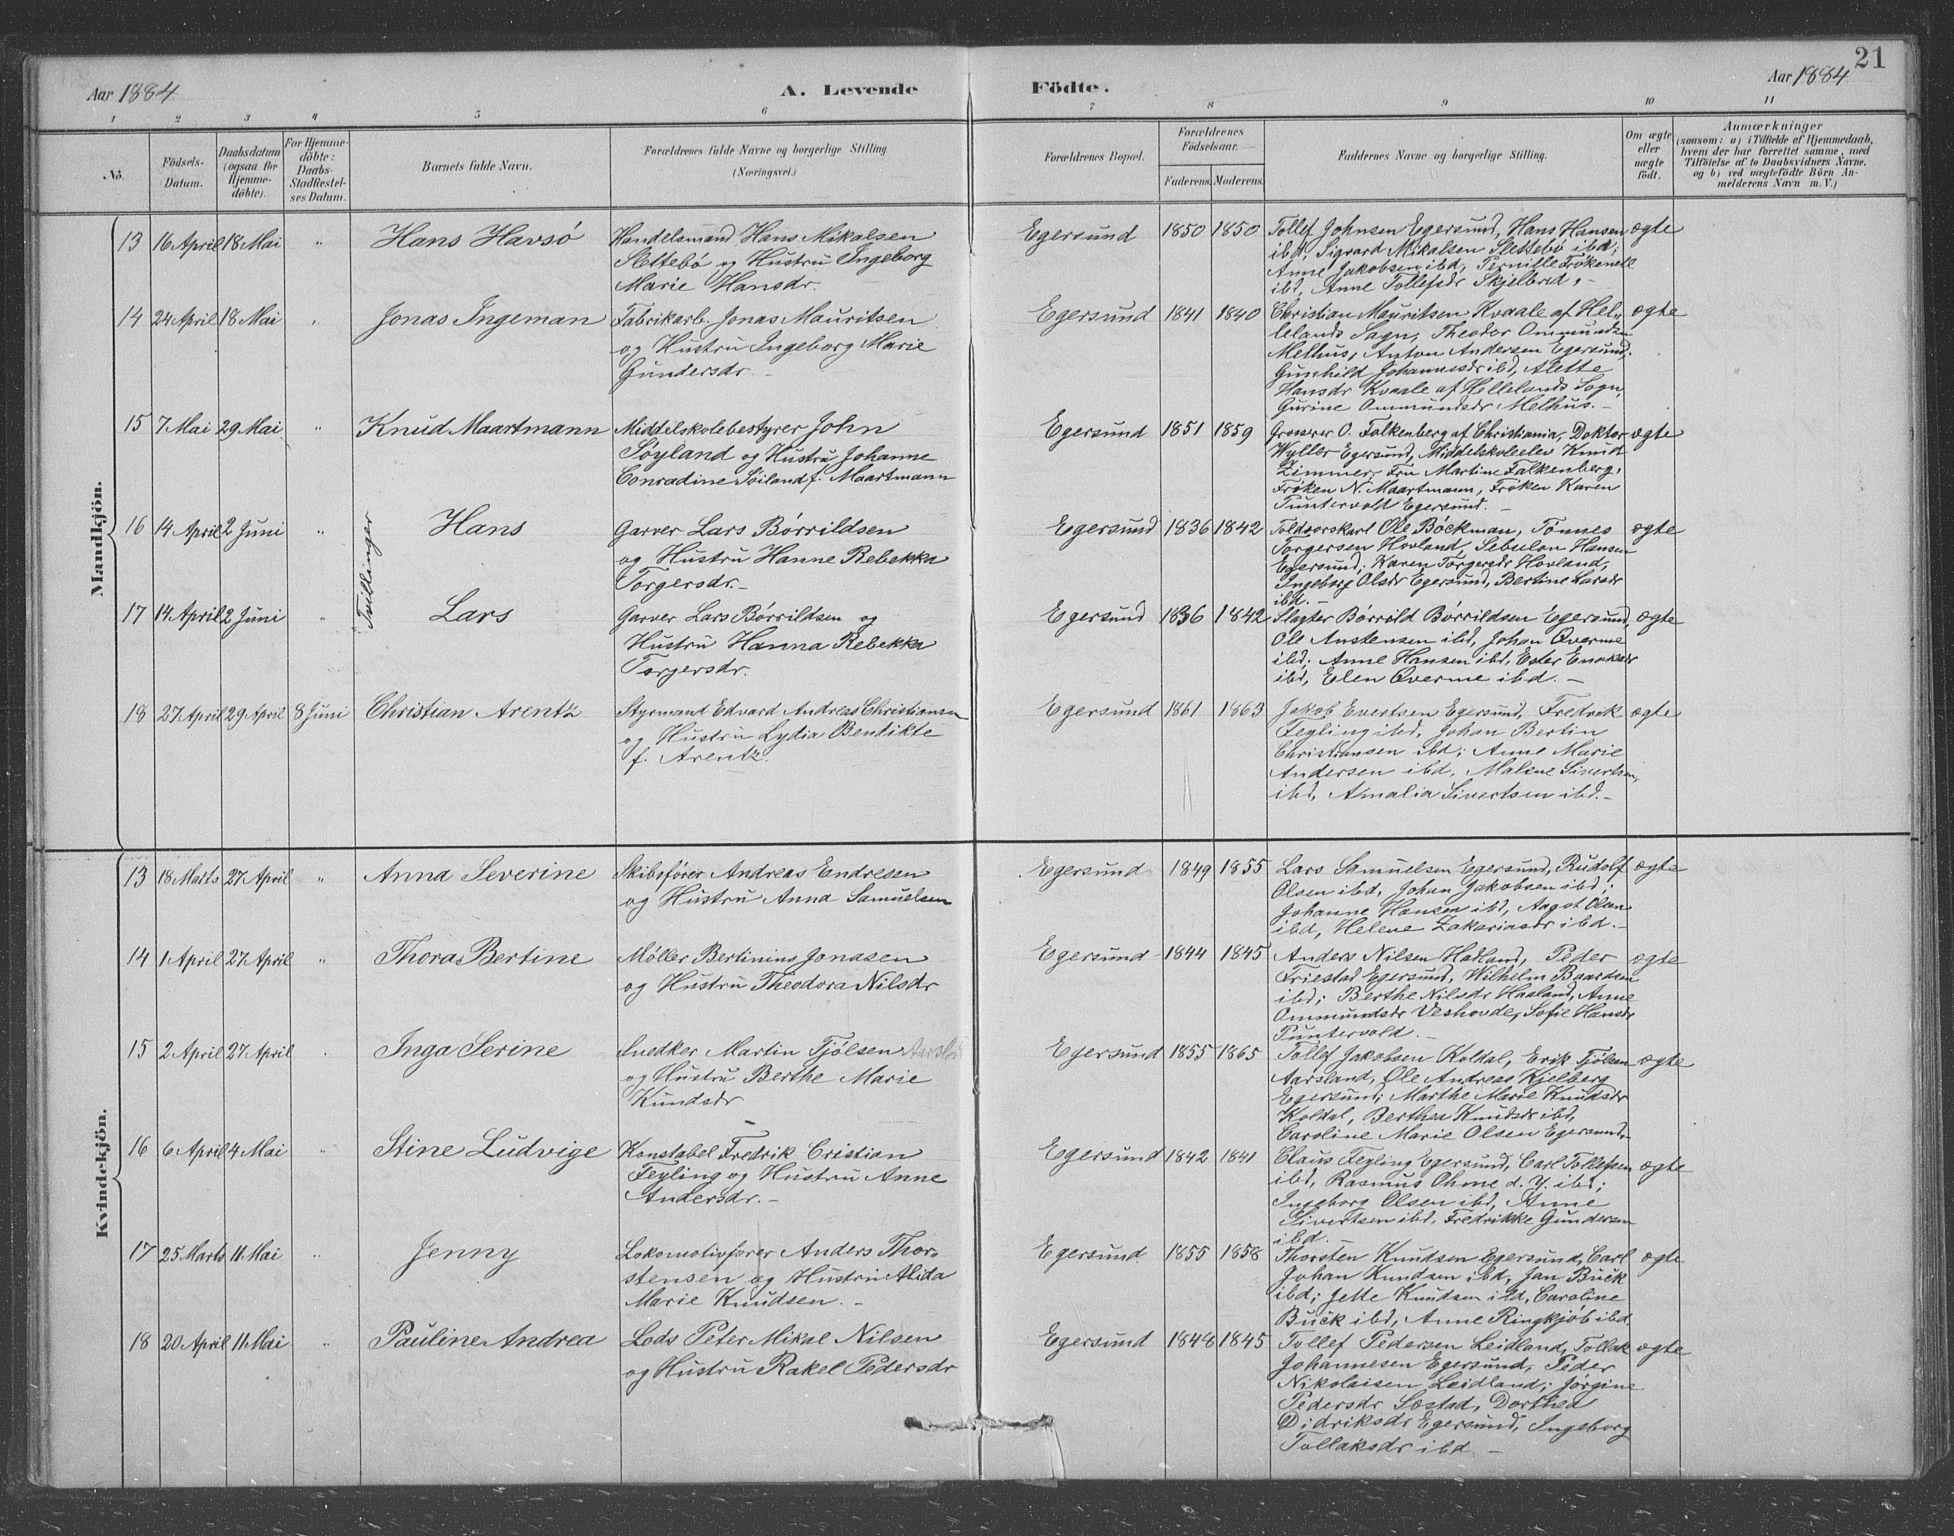 21
Aar 1884
A. Levende
Födte.
Aar 1884
1 2 3 4 5 6 7 8 9 10 11
No.
Födsels-
Datum.
Daabsdatum
(ogsaa for
Hjemme-
döbte).
For Hjemme-
döbte:
Daabs-
Stadfæstel-
ses Datum.
Barnets fulde Navn.
Forældrenes fulde Navne og borgerlige Stilling.
(Næringsvei.)
Forældrenes Bopæl.
Forældrenes
Födselsaar.
Faderens. Moderens.
Faddernes Navne og borgerlige Stilling.
Om ægte
eller
uægte
födt.
Anmærkninger
(saasom: a) i Tilfælde af Hjemmedaab,
hvem der har forrettet samme, med
Tilföielse af to Daabsvidners Navne,
og b) ved uægtefödte Börn An-
melderens Navn m. V.)
Mandkjön.
13 16 April 18 Mai " Hans Havsö
Handelsmand Hans Mikalsen
Slettebö og Hustru Ingeborg
Marie Hansdr.
Egersund 1850 1850
Tollef Johnsen Egersund, Hans Hansen
ibd, Sigvard Mikalsen Slettebö ibd;
Anne Jakobsen ibd, Pernille
ibd, Anne Tollefsdr Skjelbred,-
ægte
14 24 April 18 Mai " Jonas Ingeman
Fabrikarb. Jonas Mauritsen
og Hustru Ingeborg Marie
Gundersdr. -
Egersund 1841 1840
Christian Mauritsen Kvaale af Hel-
lelands Sogn, Theodor Ommundsen
Melhus, Anton Andersen Egersund.
Gunhild Johannesdr ibd, Alette
Hansdr Kvaale af Hellelands Sogn,
Gurine Ommundsdr Melhus. -
ægte
15 7 Mai 29 Mai " Knud Maartmann
Middelskolebestyrer John
Söyland og Hustru Johanne
Conradine Söiland f. Maartmann
Egersund 1851 1859
Grosserer O. Falkenberg af Christiania, Doktor
Wyller Egersund, Middelskoleelev Knud
Zimmer, Fru Martine Falkenberg,
Fröken N. Maartmann, Fröken Karen
Puntervold Egersund. -
ægte
Tvillinger
16 14 April 2 Juni " Hans
Garver Lars Börrildsen
og Hustru Hanne Rebekka
Torgersdr. -
Egersund 1836 1842
Toldvorskarl Ole Böckman, Tönnes
Torgersen Hovland, Sebulon Hansen
Egersund; Karen Torgersdr Hovland,
Ingeborg Olsdr Egersund, Bertine Larsdr
ibd. -
ægte
17 14 April 2 Juni " Lars
Garver Lars Börrildsen og
Hustru Hanna Rebekka
Torgersdr.
Egersund 1836 1842
Slagter Börrild Börrildsen Egersund,
Ole Anstensen ibd, Johan Qverme
ibd; Anne Hansen ibd, Ester Enoksdr
ibd, Elen Qverme ibd. -
ægte
18 27 April 29 April 8 Juni Christian Arentz
Styrmand Edvard Andreas Christiansen
og Hustru Lydia Bendikte
f. Arentz.
Egersund 1861 1863
Jakob Evertsen Egersund, Fredrik
Feyling ibd, Johan Bertin
Christiansen ibd; Anne Marie
Andersen ibd, Malene Sivertsen
ibd, Amalia Sivertsen ibd. -
ægte
Kvindekjön.
13 18 Marts 27 April " Anna Severine
Skibsförer Andreas Endresen
og Hustru Anna Samuelsen
Egersund 1849 1855
Lars Samuelsen Egersund, Rudolf
Olsen ibd, Johan Jakobsen ibd;
Johanne Hansen ibd, Aagot Olsen
ibd, Helene Zakariasdr ibd. -
ægte
14 1 April 27 April " Thoras Bertine
Möller Bertinius Jonasen
og Hustru Theodora Nilsdr
Egersund 1844 1845
Anders Nilsen Hadland, Peder
Friestad Egersund, Wilhelm Baardsen
ibd; Berthe Nilsdr Hadland, Anne
Ommundsdr Veshovde, Sofie Hansdr
Puntervold. -
ægte
15 2 April 27 April " Inga Serine
Snedker Martin Tjölsen Aarsland
og Hustru Berthe Marie
Knudsdr
Egersund 1855 1865
Tollef Jakobsen Koldal, Erik Tjölsen
Aarsland, Ole Andreas Kjelberg
Egersund; Marthe Marie Knudsdr
Koldal, Berthea Knudsdr ibd,
Caroline Marie Olsen Egersund.-
ægte
16 6 April 4 Mai " Stine Ludvige
Konstabel Fredrik Cristian
Feyling og Hustru Anne
Andersdr. -
Egersund 1842 1841
Claus Feyling Egersund, Carl Tollefsen
ibd, Rasmus Ohme d. Y. ibd;
Ingeborg Olsen ibd, Anne
Sivertsen ibd, Fredrikke Gundersen
ibd. -
ægte
17 25 Marts 11 Mai " Jenny
Lokomotivförer Anders Thor-
stensen og Hustru Alida
Marie Knudsen. -
Egersund 1855 1858
Thorsten Knudsen Egersund, Carl
Johan Knudsen ibd, Jan Buck
ibd; Jette Knudsen ibd, Caroline
Buck ibd, Anne Ringkjöb ibd
ægte
18 20 April 11 Mai " Pauline Andrea
Lods Peter Mikal Nilsen
og Hustru Rakel Pedersdr
Egersund 1848 1845
Tollef Pedersen Leidland, Tollak
Johannesen Egersund, Peder
Nikolaisen Leidland; Jörgine
Pedersdr Sæstad, Dorthea
Didriksdr Egersund, Ingeborg
Tollaksdr ibd -
ægte